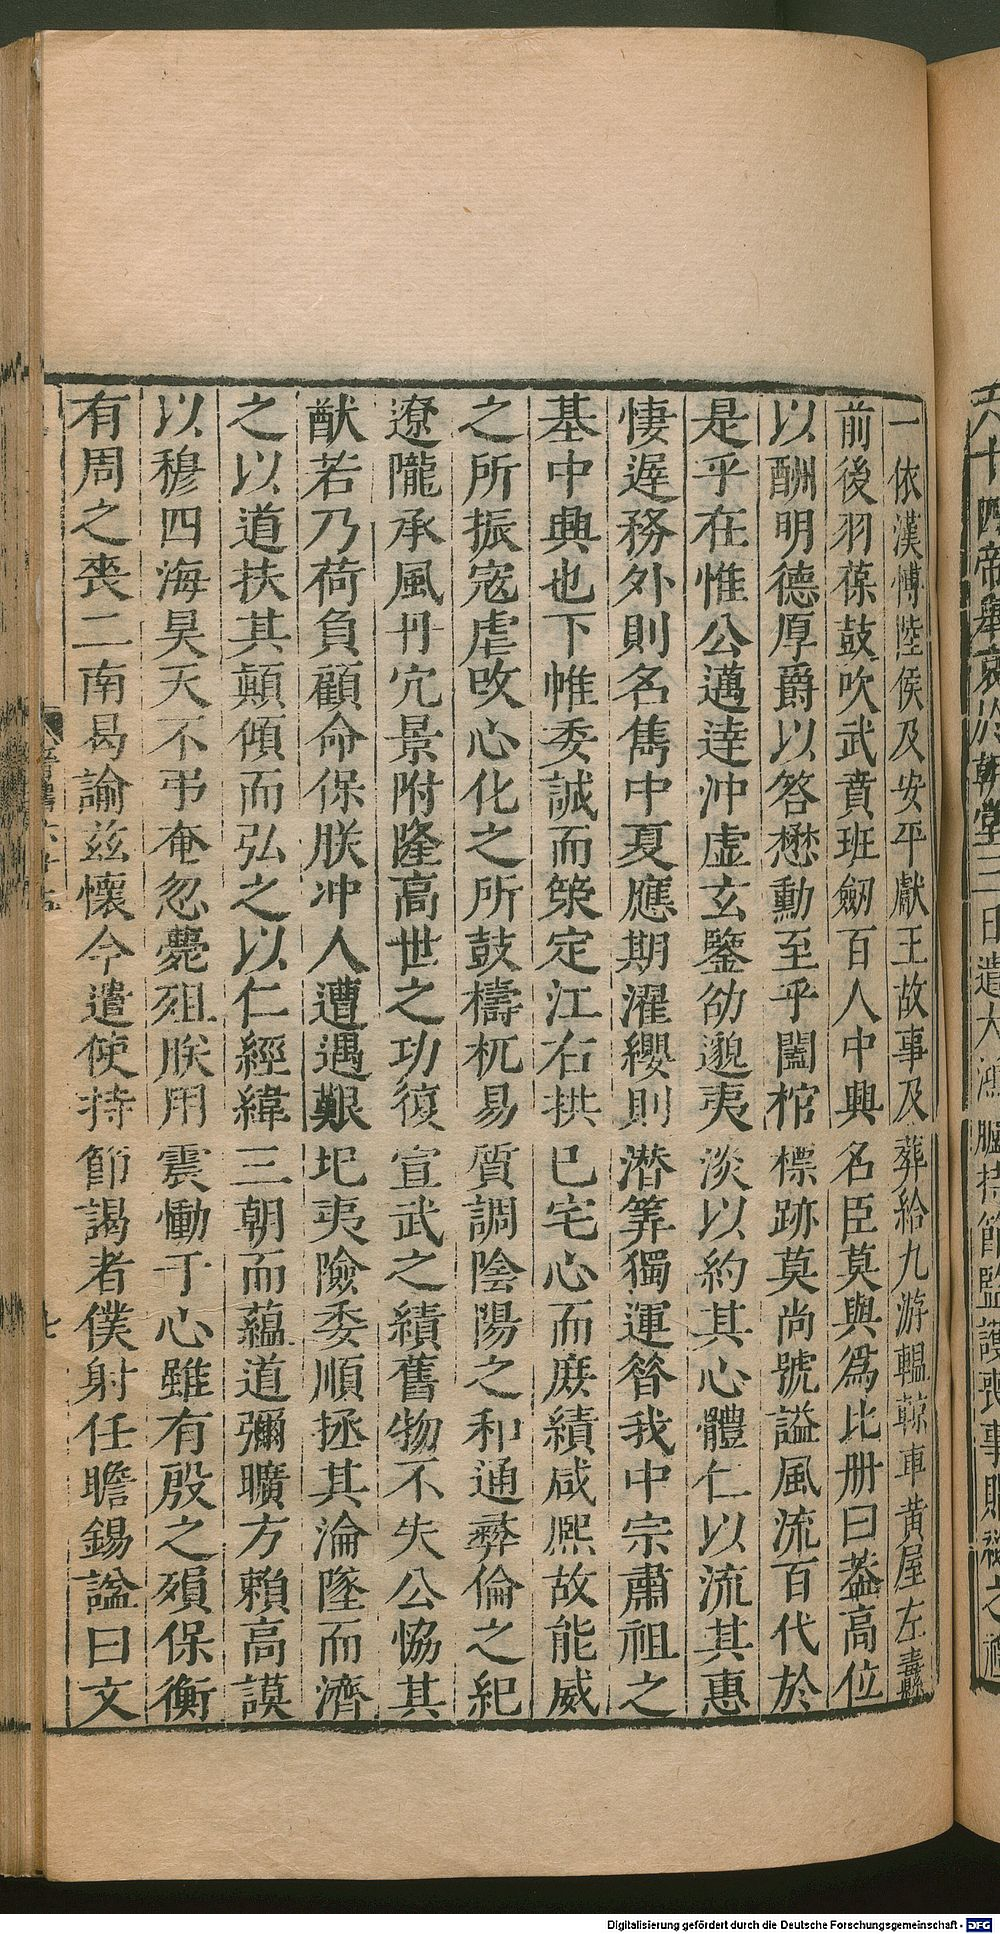 六十四帝舉哀於朝堂三日遣大鴻臚持節監護喪事賵襚之禮
一依漢博陸侯及安平獻王故事及葬給九游轀輬車黃屋左纛
前後羽葆鼓吹武賁班劒百人中興名臣莫與爲比册曰葢高位
以酬明德厚爵以答懋勳至乎闔棺標跡莫尚號謚風流百代於
是乎在惟公邁達沖虛玄鑒劭邈夷淡以約其心體仁以流其惠
悽遲務外則名雋中夏應期濯纓則潛筭獨運昝我中宗肅祖之
基中興也下帷委誠而策定江右拱已宅心而庶績咸熙故能威
之所振寇虐改心化之所鼓檮杌易質調陰陽之和通彝倫之紀
遼隴承風丹穴景附隆高世之功復宣武之績舊物不失公協其
猷若乃荷負顧命保朕冲人遭遇艱圯夷險委順拯其淪墜而濟
之以道扶其顛傾而弘之以仁經緯三朝而蘊道彌曠方賴高謨
以穆四海昊天不弔奄忽薨殂朕用震慟于心雖有殷之殞保衡
有周之喪二南曷諭兹懷今遣使持節謁者僕射任瞻錫諡曰文
七
Digitalisierung gefördert durch die Deutsche Forschungsgemeinschaft - DFG